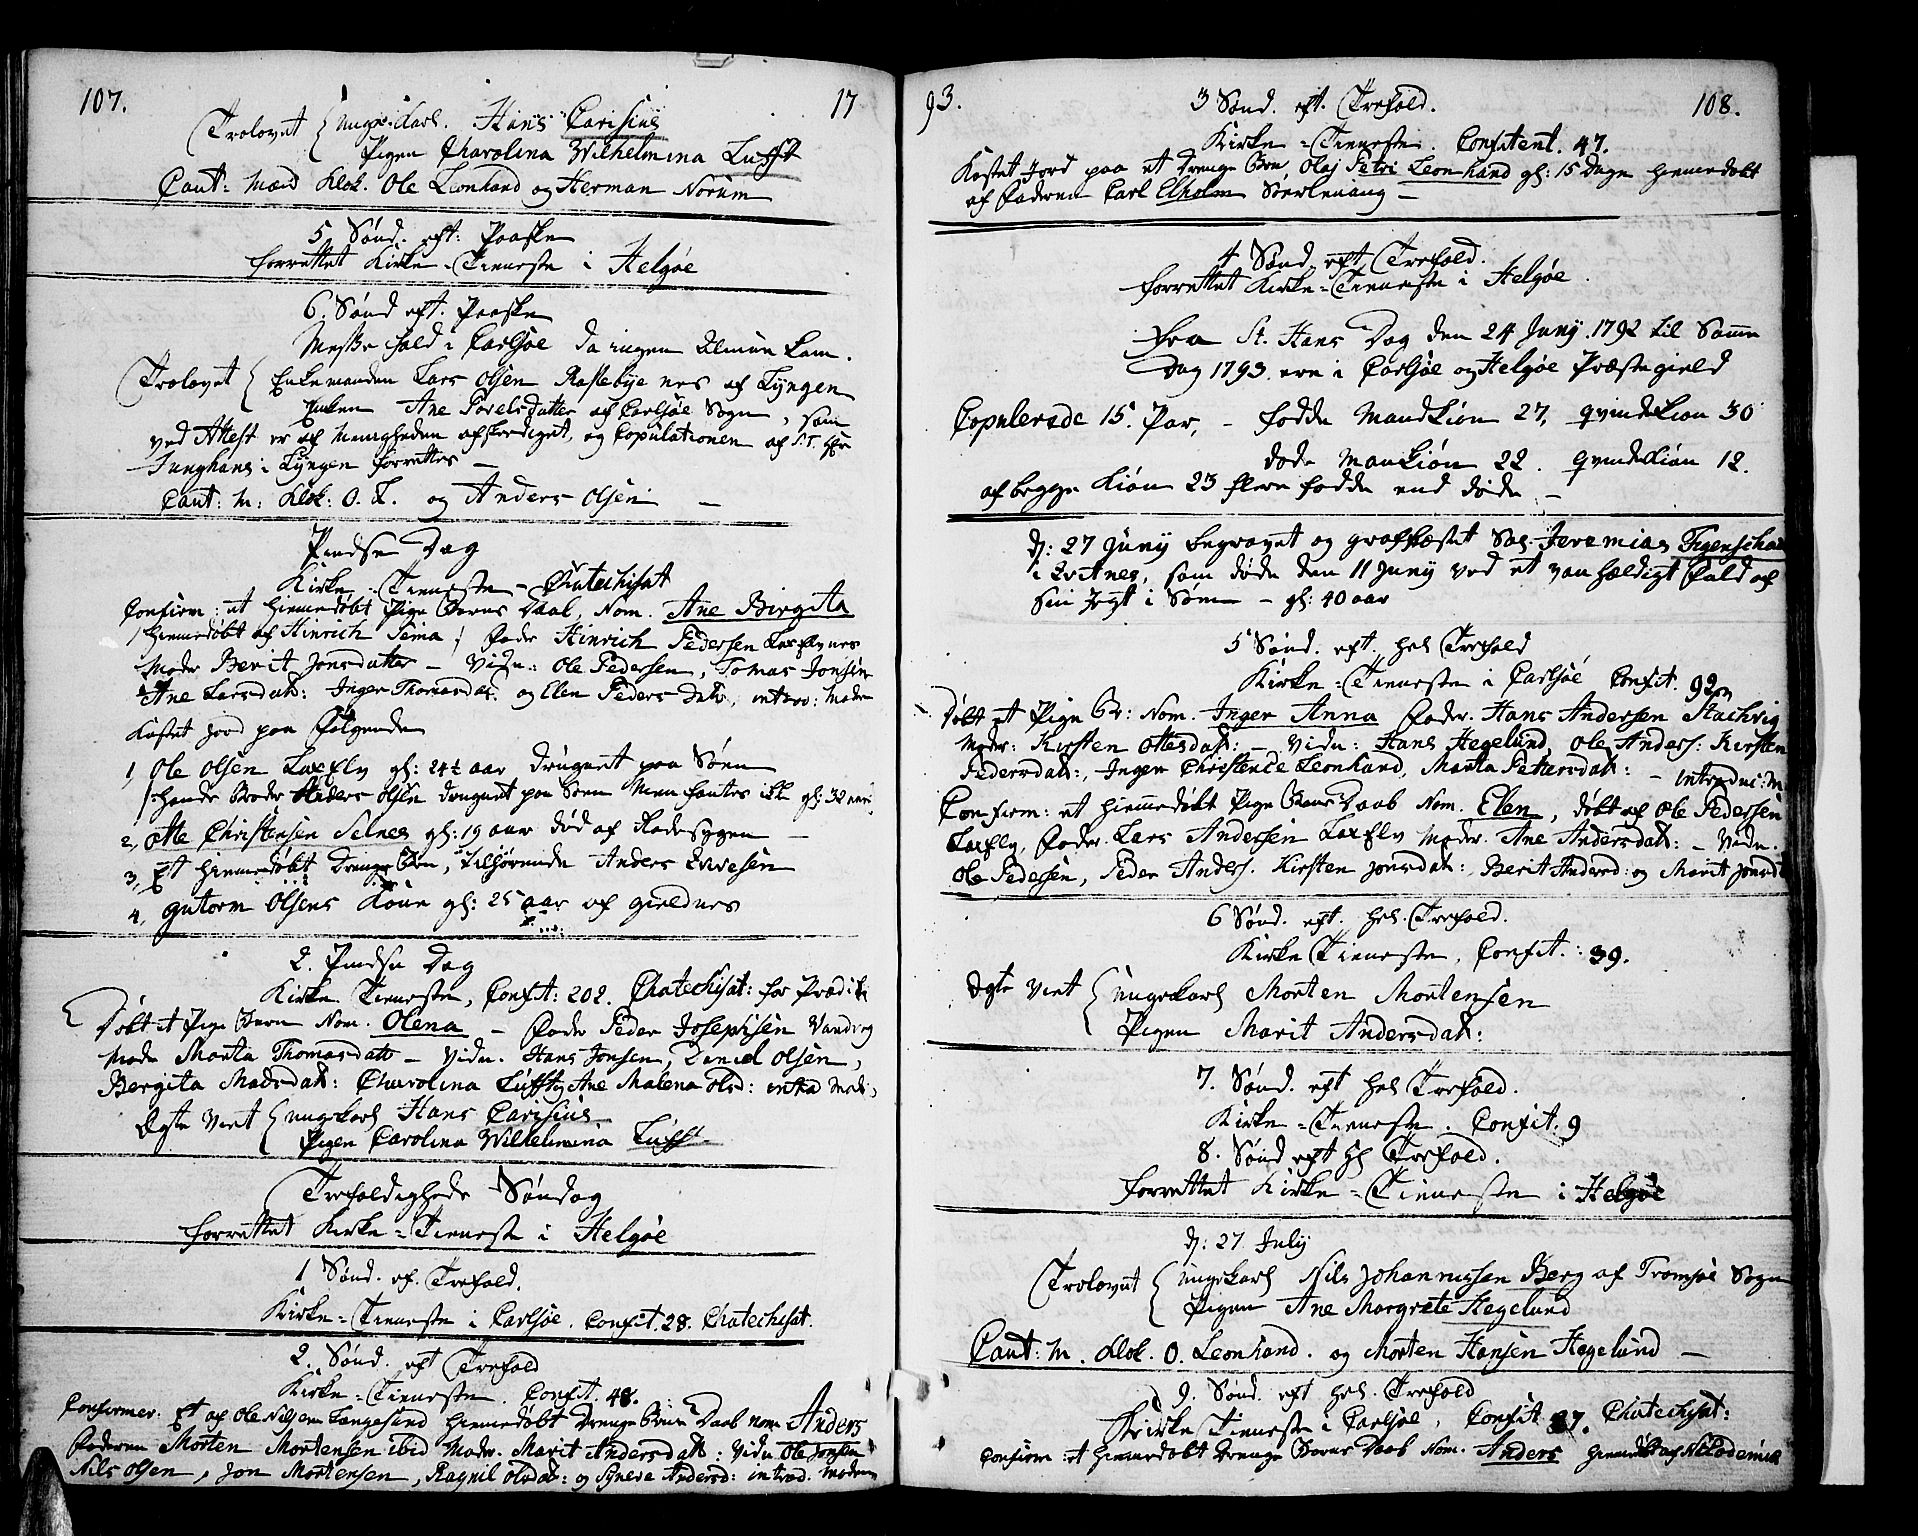 107. 17
Trolovet { Unge Karl. Hans Carisius
Pigen Charolina Wilhelmina Lufft
Caut: Mæd Klok. Ole Leonhard og Herman Norum
5 Sønd. eft: Paaske
forrettet Kirke-Tieneste i Helgøe
6. Sønd eft. Paaske
Messe fald i Carlsøe da ingen Almue kom.
Trolovet { Enkemanden Lars Olsen Rastebye nes af Lyngen
Enken Ane Povelsdatter af Carlsøe Sogn, som
ved Attest er af Menigheden afskediget, og Copulationen af S.T. Hr
Junghans i Lyngen forrettes -
Caut: M: Klok: O. L. og Anders Olsen -
Pindse Dag
Kirke-Tieneste - Chatechisat
Confirm: et hiemmedøbt Pige Barns Daab, Nom. Ane Birgita
/hiemedøbt af Hinrich Seima/ Fader Hinrich Pedersen Laxelvnes
Moder Berit Jonsdatter - Vidn: Ole Pedersen, Tomas Jonsen
Ane Larsdatt: Inger Thomasdat. og Elen Pedersdatr, introd: Moder
Kastet Jord paa Følgende
1, Ole Olsen Laxelv gl: 24½ aar drugnet paa Søen
/: hands Broder Anders Olsen drugnet paa Søen Men fantes ikke gl: 32 aar
2, Otte Christensen Selnes gl: 19 aar død af Radesygen -
3, Et hiemmedøbt Drenge Barn, tilhørende Anders Evvesen
4, Gutorm Olsens Kone gl: 25 aar af gieldnes
2. Pindse Dag
Kirke Tieneste, Confit: 202. Chatechisat: for Prædik
Døbt et Pige Barn Nom. Olena - Fader Peder Josephsen Vandveg
Moder Marta Thomasdatt - Vidn. Hans Jonsen, Daniel Olsen,
Bergita Madsdatt: Charolina Lufft og Ane Malena Olsd: intro Mod:,
Egte Viet { Ungekarl Hans Carisius
Pigen Carolina Wilhelmina Lufft
Trefoldigheds Søndag
forrettet Kirke-Tieneste i Helgøe
1 Sønd. ef. Trefold.
Kirke-Tieneste i Carlsøe. Confit. 28. Chatechisat.
2. Sønd. eft Trefold
Kirke-Tieneste. Confit. 48.
Confirmer: Et af Ole Nilsen Langesund hiemmedøbt Drenge Barns Daab nom Anders
Faderen Morten Mortensen ibid Moder. Marit Andersdatt: Vidn Ole Jonsen
Nils Olsen, Jon Mortensen, Ragnil Olsdat: og Syneve Andersd: introd. Moderen
93. 108.
3 Sønd. eft. Trefold.
Kirke-Tieneste. Confitent. 47.
Kastet Jord paa et Drenge Barn, Olaj Petri Leonhard gl: 15 Dage hiemedøbt
af Faderen Carl Elholm Storlenang -
4 Sønd. eft Trefold.
forrettet Kirke-Tieneste i Helgøe.
Fra St. Hans Dag den 24 Junij 1792 til Samme
Dag 1793. ere i Carlsøe og Helgøe Præstegield
Copulerede 15. Par, - fødde Mandkiøn 27, Qvindekiøn 30
døde Mankiøn 22. Qvindekiøn 12.
af begge Kiøn 23 flere fødde end døde -
d: 27 Junij begravet og grafkastet Sal. Jeremias Figenschau
i Qvitnes, som døde den 11 Junij ved et vanhældigt Fald af
Sin Jægt i Søen - gl: 40 aar
5 Sønd. eft. hel Trefold
Kirke-Tieneste i Carlsøe Confit. 92
Døbt et Pige Br: Nom. Inger Anna Fader. Hans Andersen Stachvig
Moder: Kirsten Ottesdatt: - Vidn: Hans Hegelund, Ole Anders: Kirsten
Pedersdatt:, Inger Christence Leonhard, Marta Pettersdatt: - introduc: M
Confirm: et hiemmedøbt Pige Barns Daab Nom. Elen, døbt af Ole Pedersen
Laxelv, Fader. Lars Andersen Laxelv Moder. Ane Andersdatt: - Vidn.
Ole Pedersen, Peder Anders. Kirsten Jonsdatt: Berit Andersd: og Marit Jonsdt
6 Sønd. eft. hel. Trefold.
Kirke Tieneste, Confit.: 39.
Egte Viet { Ungekarl Morten Mortensen
Pigen Marit Andersdatt:
7. Sønd. eft hel Trefold.
Kirke-Tieneste. Confit. 9
8. Sønd eft hl Trefold.
forrettet Kirke-Tieneste i Helgøe
d: 27 Julij
Trolovet { Ungekarl Nils Johannesen Berg af Tromsøe Sogn
Pigen Ane Margrete Hegelund
Caut: M. Klok. O. Leonhard. og Morten Hansen Hegelund -
9. Sønd. eft hel. Trefold
Kirke Tieneste i Carlsøe, Confit 27. Chatechisat:
Confirm: et hiemmedøbt Drenge Barns Daab Nom. Anders hiemedøbt af Nicodemus